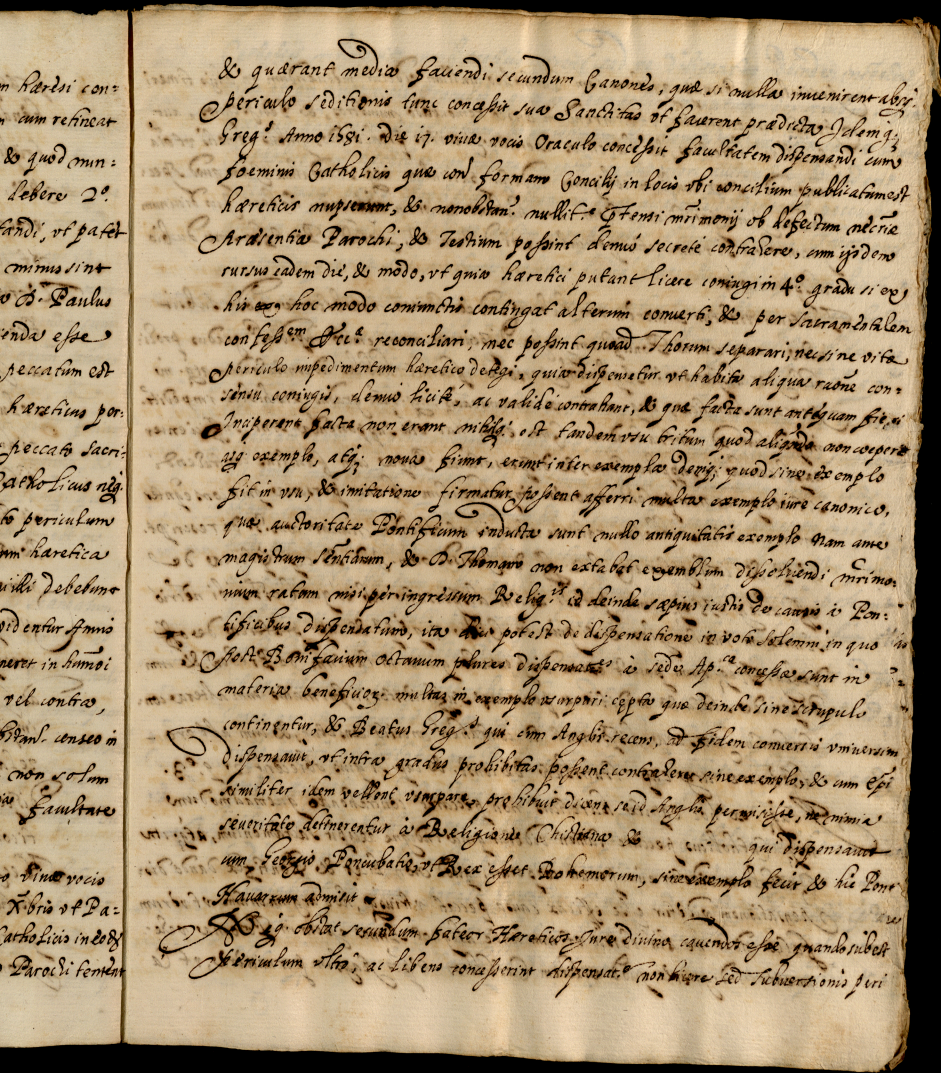 m hæresi con=
cum retineat
& quod nun=
debere 2º.
tandi, vt patet
minus sint
D. Paulus
enda esse
peccatum est
hæreticus per:
peccato sacri=
Catholicus
to periculum
um hæretica
debebunt
videntur Anno
neret in
vel contra,
censeo in
non solum
facultate
vivæ vocis
Xbris vt Pa=
Catholicis in
Parochi
& quærant media faciendi secundum Canones, quæ si nulla invenirent absq;
periculo seditionis tunc concessit sua Sanctitas vt facerent prædicta Idemq;
Greg.s Anno 1581. Die 17. vivæ vocis Oraculo concessit facultatem dispensandi cum
foeminis Catholicis quæ formam Concilij in locis vbi concilium publicatum est
hæreticis nupserunt, & nonobstan. nullit.e ob defectum
Præsentiæ Parochi, & Testium possint denuo secrete contrahere, cum ijsdem
rursus eadem die, & modo, vt quia hæretici putant licere coniugi in 4.º gradu si ex
his hoc modo coniunctis contingat alterum converti, & per sacramentalem
confess.em reconciliari, nec possint quoad Thorum separari, nec sine vitæ
periculo impedimentum hæretico detegi, quia dispensetur vt habita aliqua con=
sensu coniugis, denuo licite, ac valide contrahant, & quæ facta sunt antequam
facta non erant est tandem vsu tritum quod non
exemplo, atq; nova fiunt, erunt inter exempla deniq; quod sine exemplo
fit in vsu, & imitatione firmatur possent afferri multa exempla iure canonico,
quæ auctoritate Pontificum inducta sunt nullo antiquitatis exemplo Nam ante
magistrum & D. Thomam non extabat exemplum dissolvendi mrimo=
nium ratum nisi per ingressum Relig.is id deinde sæpius iustis de causis à Pon=
tificibus dispensatum, ita potest de dispensatione in voto solemni, in quo
Post Bonifacium octavum plures à sede Ap.ca concessæ sunt in
materia multas in exemplo vsurpari cepta quæ deinde sine scrupulo
continentur, & Beatus Greg.s qui cum Anglis recens, ad fidem conversis vniversim
dispensavit, vt intra gradus prohibitas possent contrahere sine exemplo, & cum
similiter idem vellent vsurpare, prohibuit dicens se id Anglis permisisse, ne nimia
severitate à Religione Christiana & qui dispensavit
cum Georgio vt Rex esset Bohemorum, sine exemplo fecit & hic Pont
admisit
obstat secundum fateor Hæreticos Iure divino cavendos esse quando subest
Periculum vltro, ac libens concesserim dispensat.e non licere sed subversionis peri